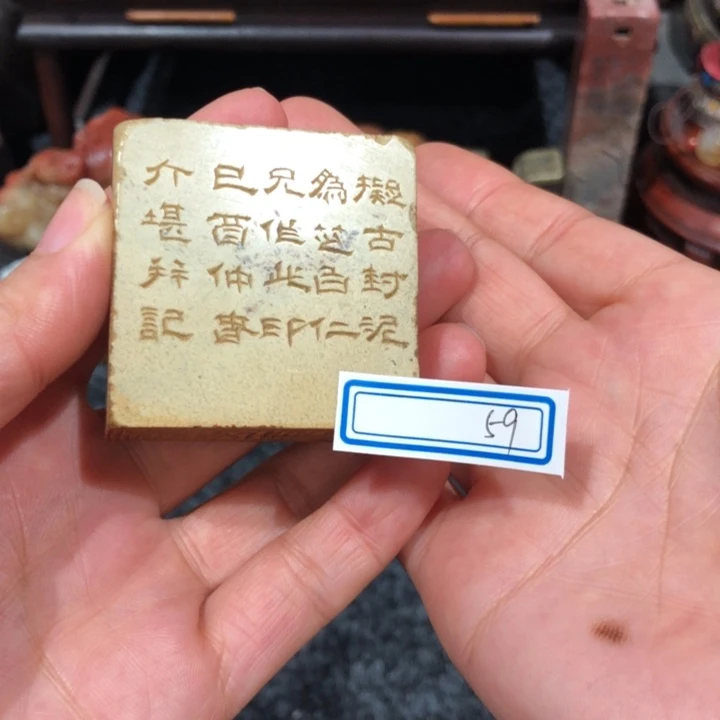 擬古封泥
為白仁
兄作此印
巳酉仲春
介堪并記
59